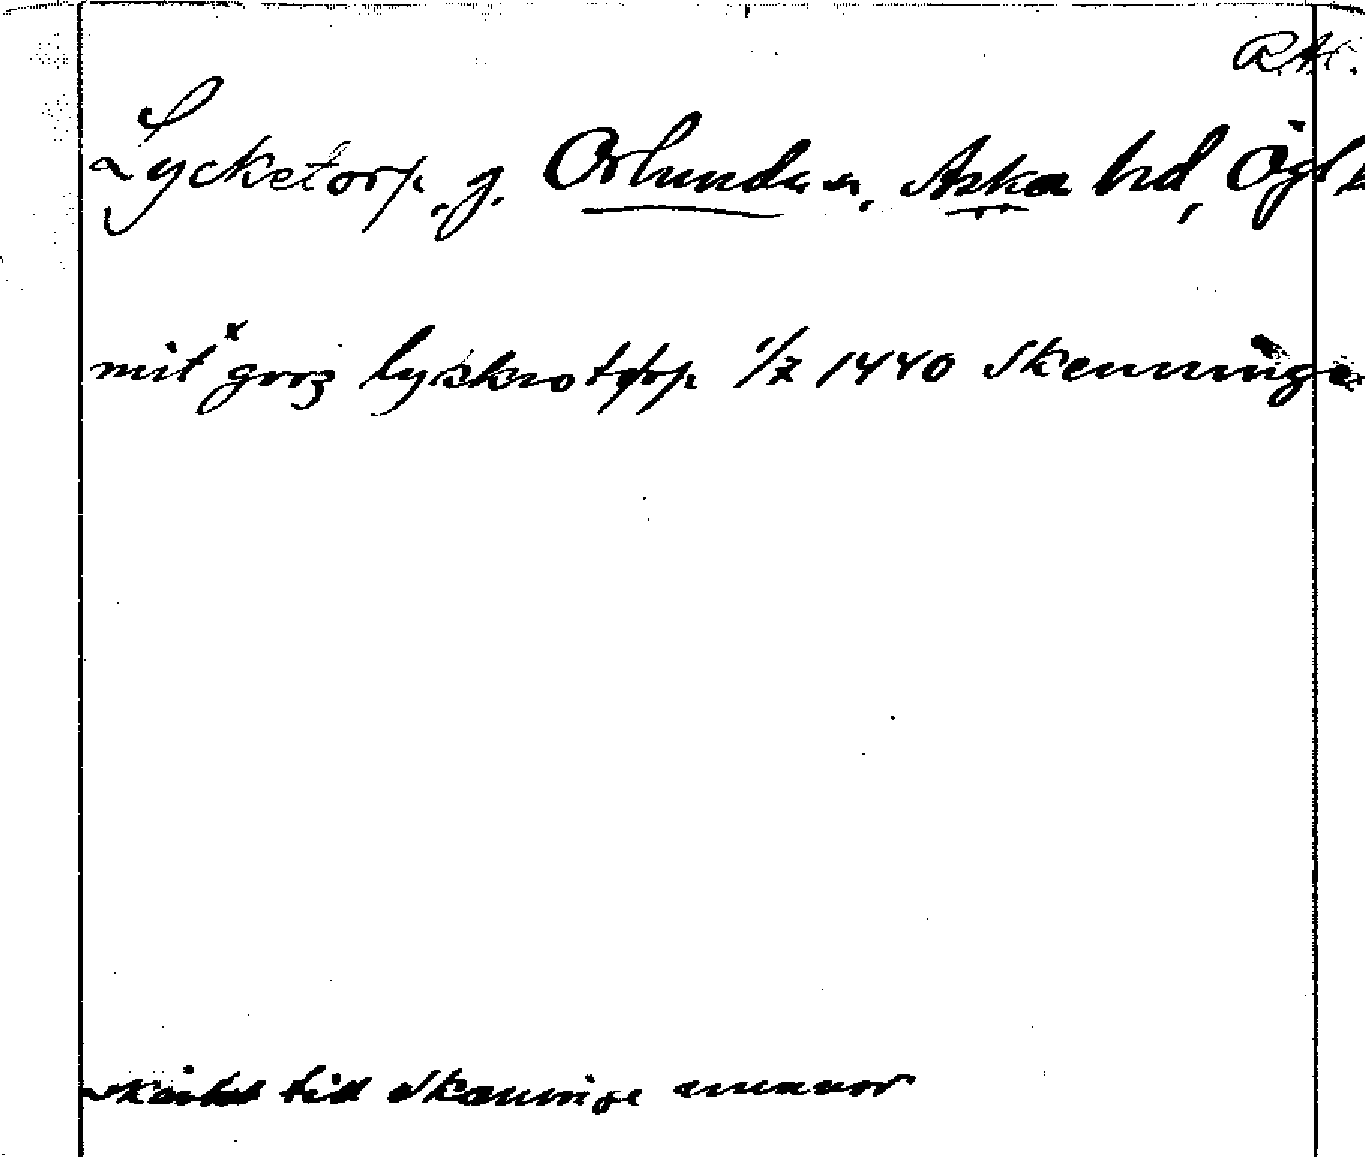 RA.
Lycketorp, g. Orlunda sn, Aska hd, Ögl
mit x gorz lyskrotorp 1/2 1440 Skenninge
skänkt till Skenninge nunnor